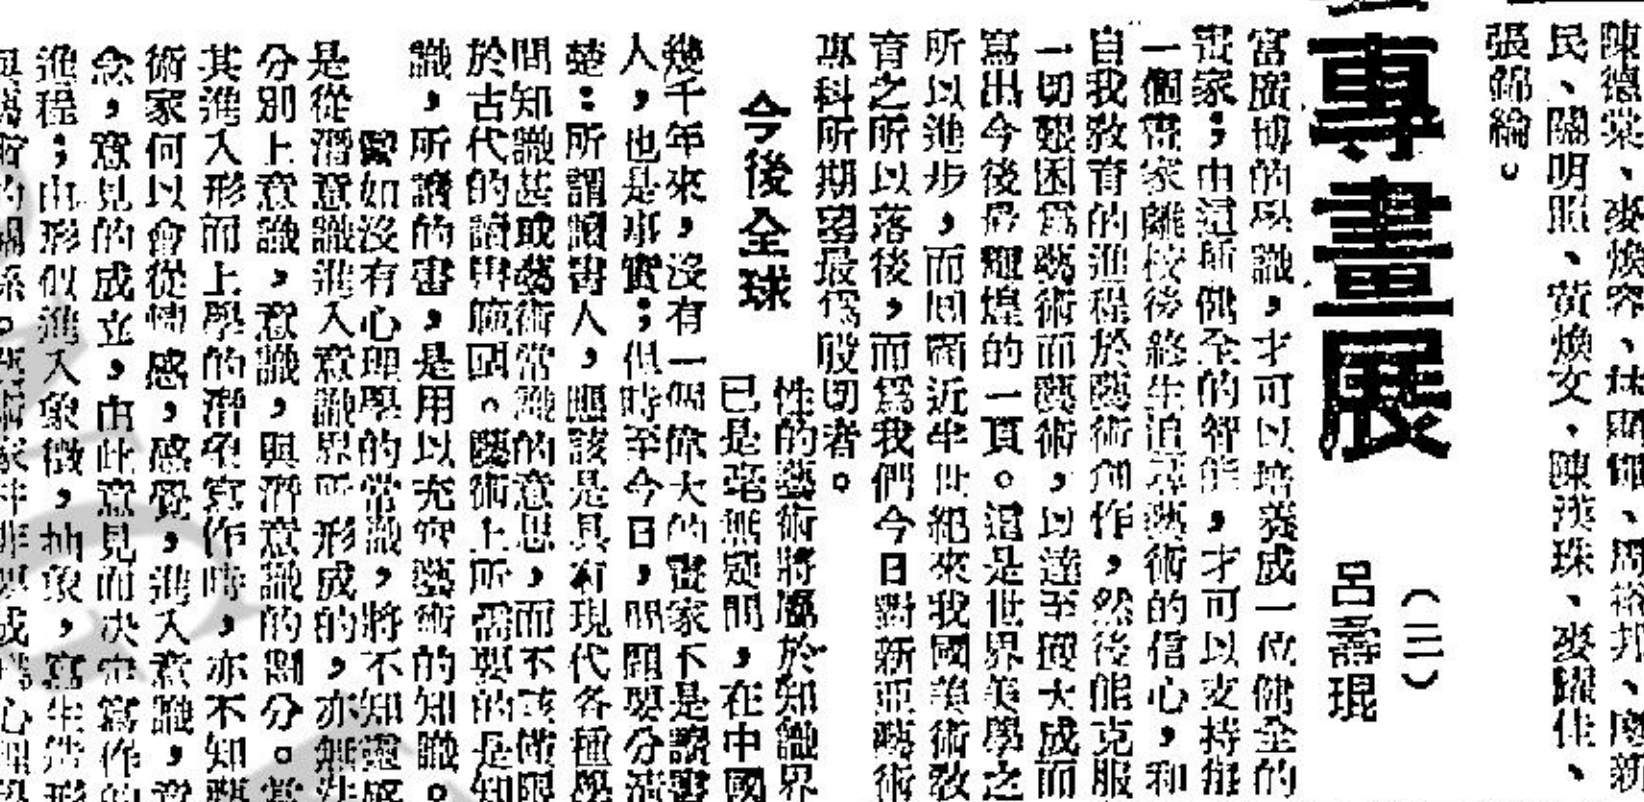 陳德棠、麥煥容、林
民、關明照、黃煥文、陳漢珠、麥躍佳、
張錦綸。
專畫展
（三）
呂壽琨
富廣博的學識，才可以培養成一位健全的
畫家；由這所健全的智能，才可以支持每
一個畫家離校後終生追尋藝術的信心，和
自我教育的進程於藝術創作，然後能克服
一切艱困爲藝術而藝術，以達至廣大成而
寫出今後最輝煌的一頁。這是世界美學之
所以進步，而回顧近半世紀來我國美術教
育之所以落後，而爲我們今日對新亞藝術
專科所期望最爲殷切者。
今後全球
性的藝術將屬於知識界
已是毫無疑問，在中國
幾千年來，沒有一個偉大的畫家不是讀書
人，也是事實；但時至今日，問題要分清
楚：所謂讀書人，應該是具有現代各種學
問知識甚或藝術常識的意思，而不該僅限
於古代的讀書範圍。藝術上所需要的是知
識，所讀的書，是用以充實藝術的知識。
譬如沒有心理學的常識，將不知靈感
是從潛意識進入意識界所形成的，亦無法
分別上意識，意識，與潛意識的劃分。當
其進入形而上學的潛在寫作時，亦不知藝
術家何以會從情感，感覺，進入意識，意
念，意見的成立，由此意見而決定寫作的
進程；由形似進入象徵，抽象，寫生造形
的關係。